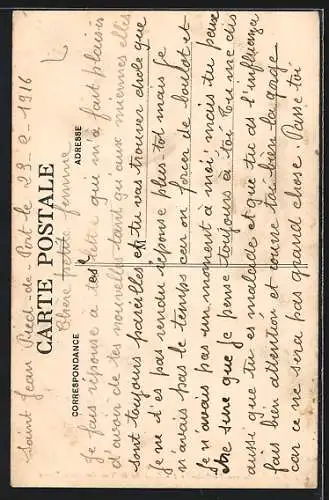 Saint Jean Pied-de-Port le 23-2-1916
CARTE POSTALE
CORRESPONDANCE
ADRESSE
Chère petite femme
Je fais réponse à ta lettre qui m'a fait plaisir
d'avoir de tes nouvelles tand qu'aux miennes elles
sont toujours pareilles et tu vas trouver drole que
Je ne t'es pas rendu réponse plus-tot mais Je
n'avais pas le temps car on forcer de boulot et
Je n'avais pas un moment à moi mais tu peux
etre sure que Je pense toujours à toi tu me dis
aussi que tu es malade et que tu as l'influenza
fais bien attention et couvre toi bien la gorge
car ce ne sera pas grand chose. Passe toi